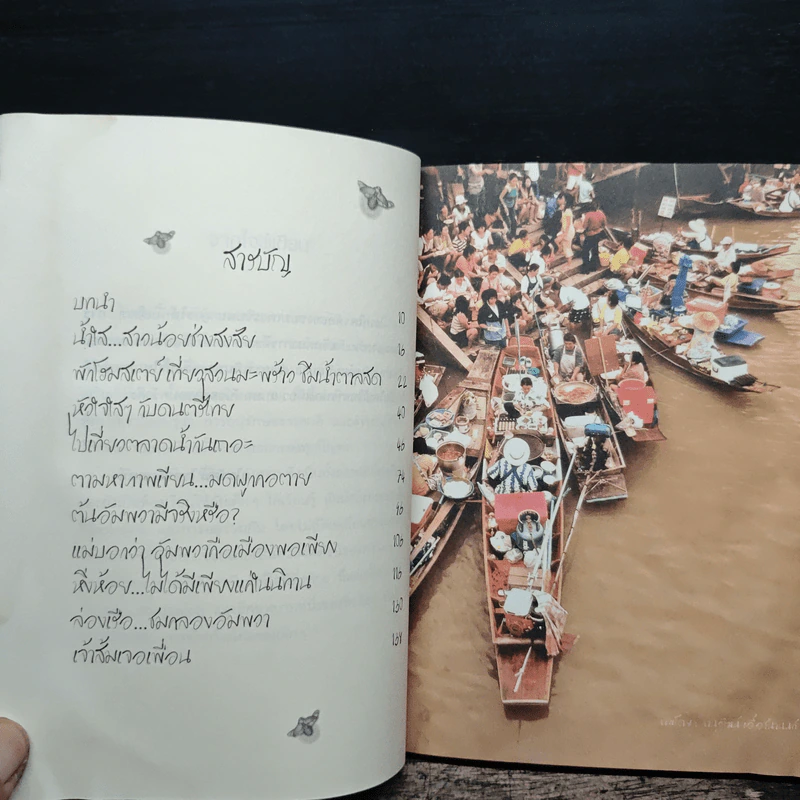 สารบัญ
บทนำ 10
น้ำใส...สาวน้อยช่างสงสัย 16
พักโฮมสเตย์ เที่ยวสวนมะพร้าว ชิมน้ำตาลสด 22
หัวใจใสๆ กับดนตรีไทย 40
ไปเที่ยวตลาดน้ำกันเถอะ 46
ตามหาภาพเขียน...มดผูกคอตาย 74
ต้นอัมพวามีจริงหรือ?
แม่บอกว่า อัมพวาคือเมืองพอเพียง 106
หิ่งห้อย...ไม่ได้มีเพียงแค่ในนิทาน 116
ล่องเรือ...ชมคลองอัมพวา
เจ้าส้มเจอเพื่อน